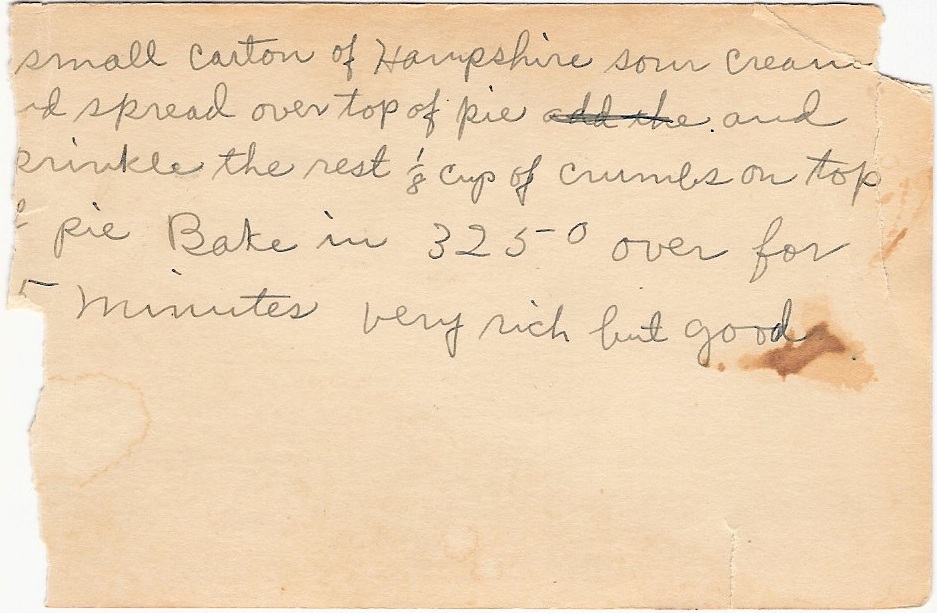 small carton of Hampshire sour cream
d spread over top of pie add the and
prinkle the rest 1/8 cup of crumbs on top
pie Bake in 325° over for
5 minutes very rich but good